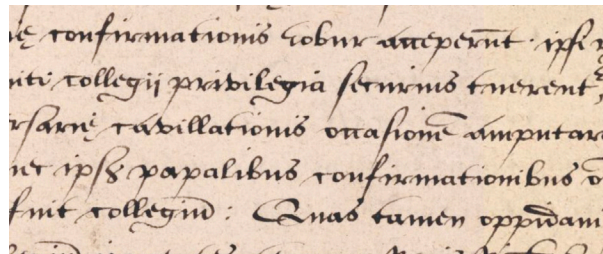 ę confirmationis robur acceperūt · ipsi
collegij privilegia securius tuerent
sarię cavillationis occasionē amputar
ec papalibus confirmationibus
fuit collegiū : Quas tamen oppidam